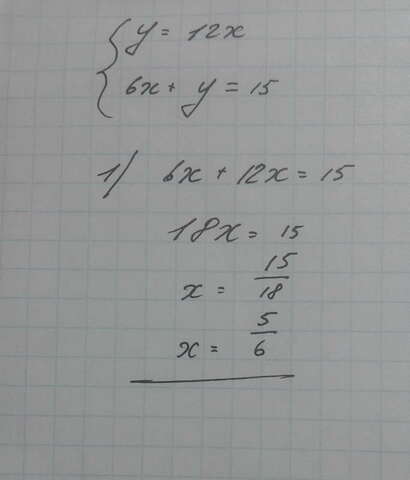 { y = 12x
6x + y = 15
1) 6x + 12x = 15
18x = 15
x = 15/18
x = 5/6